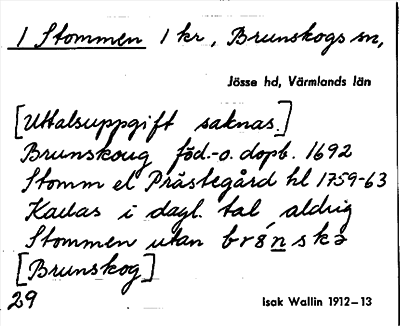 1 Stommen 1 kr, Brunskogs sn,
Jösse hd, Värmlands län
[Uttalsuppgift saknas.]
Brunskoug föd.-o. dopb. 1692
Stomm el Prästegård hl 1759-63
Kallas i dagl. tal aldrig
Stommen utan
[Brunskog]
29
Isak Wallin 1912-13